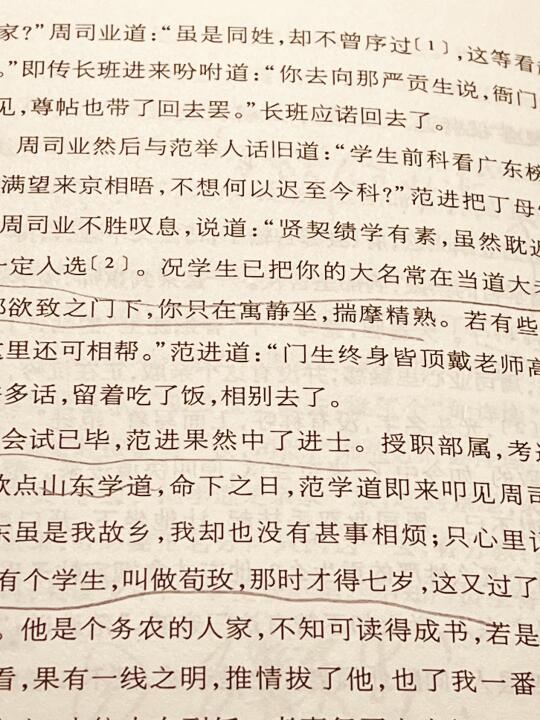 家？”周司业道：“虽是同姓，却不曾序过〔1〕，这等看
。”即传长班进来吩咐道：“你去向那严贡生说，衙门
见，尊帖也带了回去罢。”长班应诺回去了。
周司业然后与范举人话旧道：“学生前科看广东榜
满望来京相晤，不想何以迟至今科？”范进把丁母
周司业不胜叹息，说道：“贤契绩学有素，虽然耽迟
一定入选〔2〕。况学生已把你的大名常在当道大
都欲致之门下，你只在寓静坐，揣摩精熟。若有些
这里还可相帮。”范进道：“门生终身皆顶戴老师高
多话，留着吃了饭，相别去了。
会试已毕，范进果然中了进士。授职部属，考
钦点山东学道，命下之日，范学道即来叩见周司
东虽是我故乡，我却也没有甚事相烦；只心里
有个学生，叫做荀玫，那时才得七岁，这又过了
。他是个务农的人家，不知可读得成书，若是
看，果有一线之明，推情拔了他，也了我一番